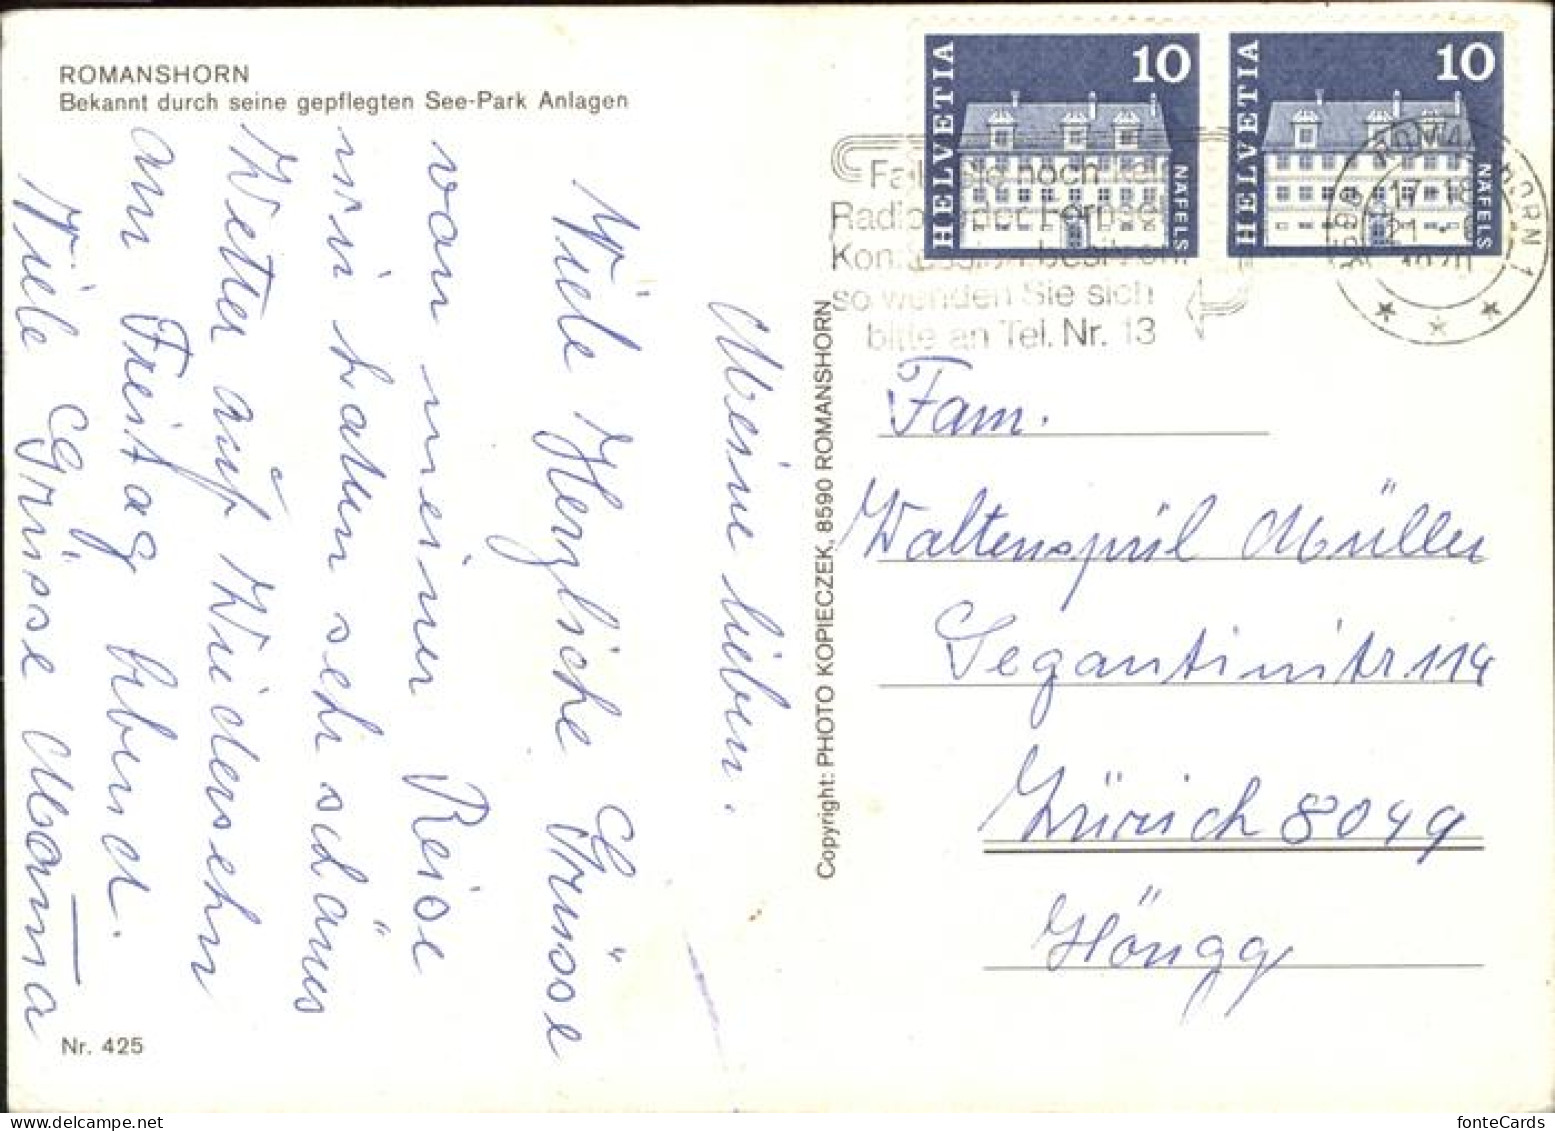 ROMANSHORN
Bekannt durch seine gepflegten See-Park Anlagen
HELVETIA 10 NÄFELS
HELVETIA 10 NÄFELS
8590 ROMANSHORN 1
17-18
21
1970
Radio oder Fernseh
Konzession besitzen,
so wenden Sie sich
bitte an Tel. Nr. 13
Meine lieben.
Viele Herzliche Grüsse
von meiner Reise
wir hatten sehr schönes
Wetter auf Wiedersehn
am Freitag Abend.
Viele Grüsse Mama
Fam.
Waltenspül Müller
Segantinistr 114
Zürich 8049
Höngg
Copyright: PHOTO KOPIECZEK, 8590 ROMANSHORN
Nr. 425
fonteCards